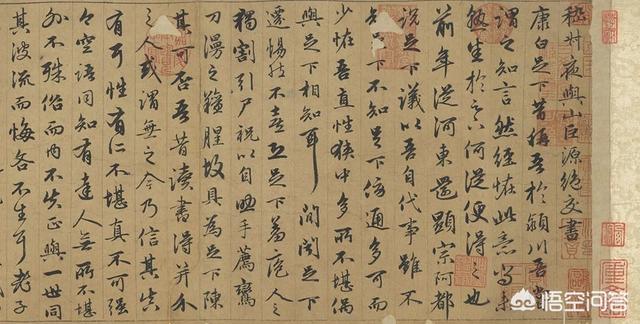 嵇叔夜與山巨源絕交書
康白足下昔稱吾於潁川吾嘗
謂之知言然經怪此意尚未
熟悉於足下何從便得之也
前年從河東還顯宗阿都
說足下議以吾自代事雖不
知足下不知足下傍通多可而
少怪吾直性狹中多所不堪偶
與足下相知耳間聞足下
遷惕然不喜恐足下羞庖人之
獨割引尸祝以自助手薦鸞
刀漫之羶腥故具為足下陳
其可否吾昔讀書得并介
之人或謂無之今乃信其真
有耳性有所不堪真不可強
今空語同知有達人無所不堪
外不殊俗而內不失正與一世同
其波流而悔吝不生耳老子
悟空问答